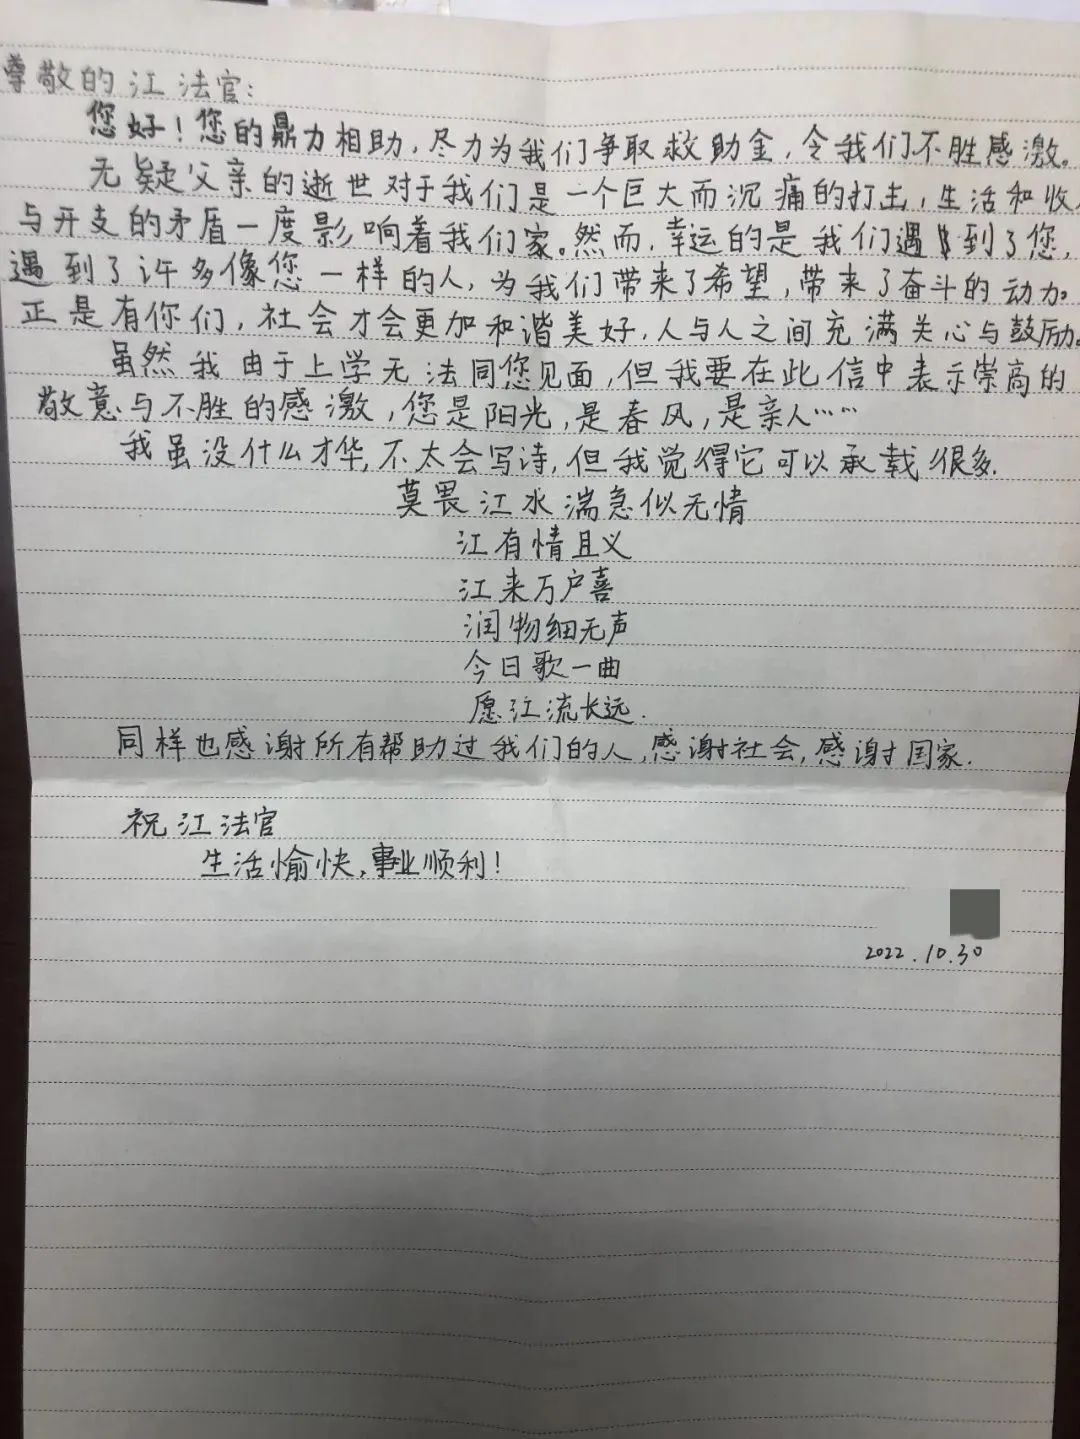 尊敬的江法官：
您好！您的鼎力相助，尽力为我们争取救助金，令我们不胜感激。
无疑父亲的逝世对于我们是一个巨大而沉痛的打击，生活和收入
与开支的矛盾一度影响着我们家。然而，幸运的是我们遇到了您，
遇到了许多像您一样的人，为我们带来了希望，带来了奋斗的动力。
正是有你们，社会才会更加和谐美好，人与人之间充满关心与鼓励。
虽然我由于上学无法同您见面，但我要在此信中表示崇高的
敬意与不胜的感激，您是阳光，是春风，是亲人……
我虽没什么才华，不太会写诗，但我觉得它可以承载很多.
莫畏江水湍急似无情
江有情且义
江来万户喜
润物细无声
今日歌一曲
愿江流长远.
同样也感谢所有帮助过我们的人，感谢社会，感谢国家.
祝江法官
生活愉快，事业顺利！
2022.10.30